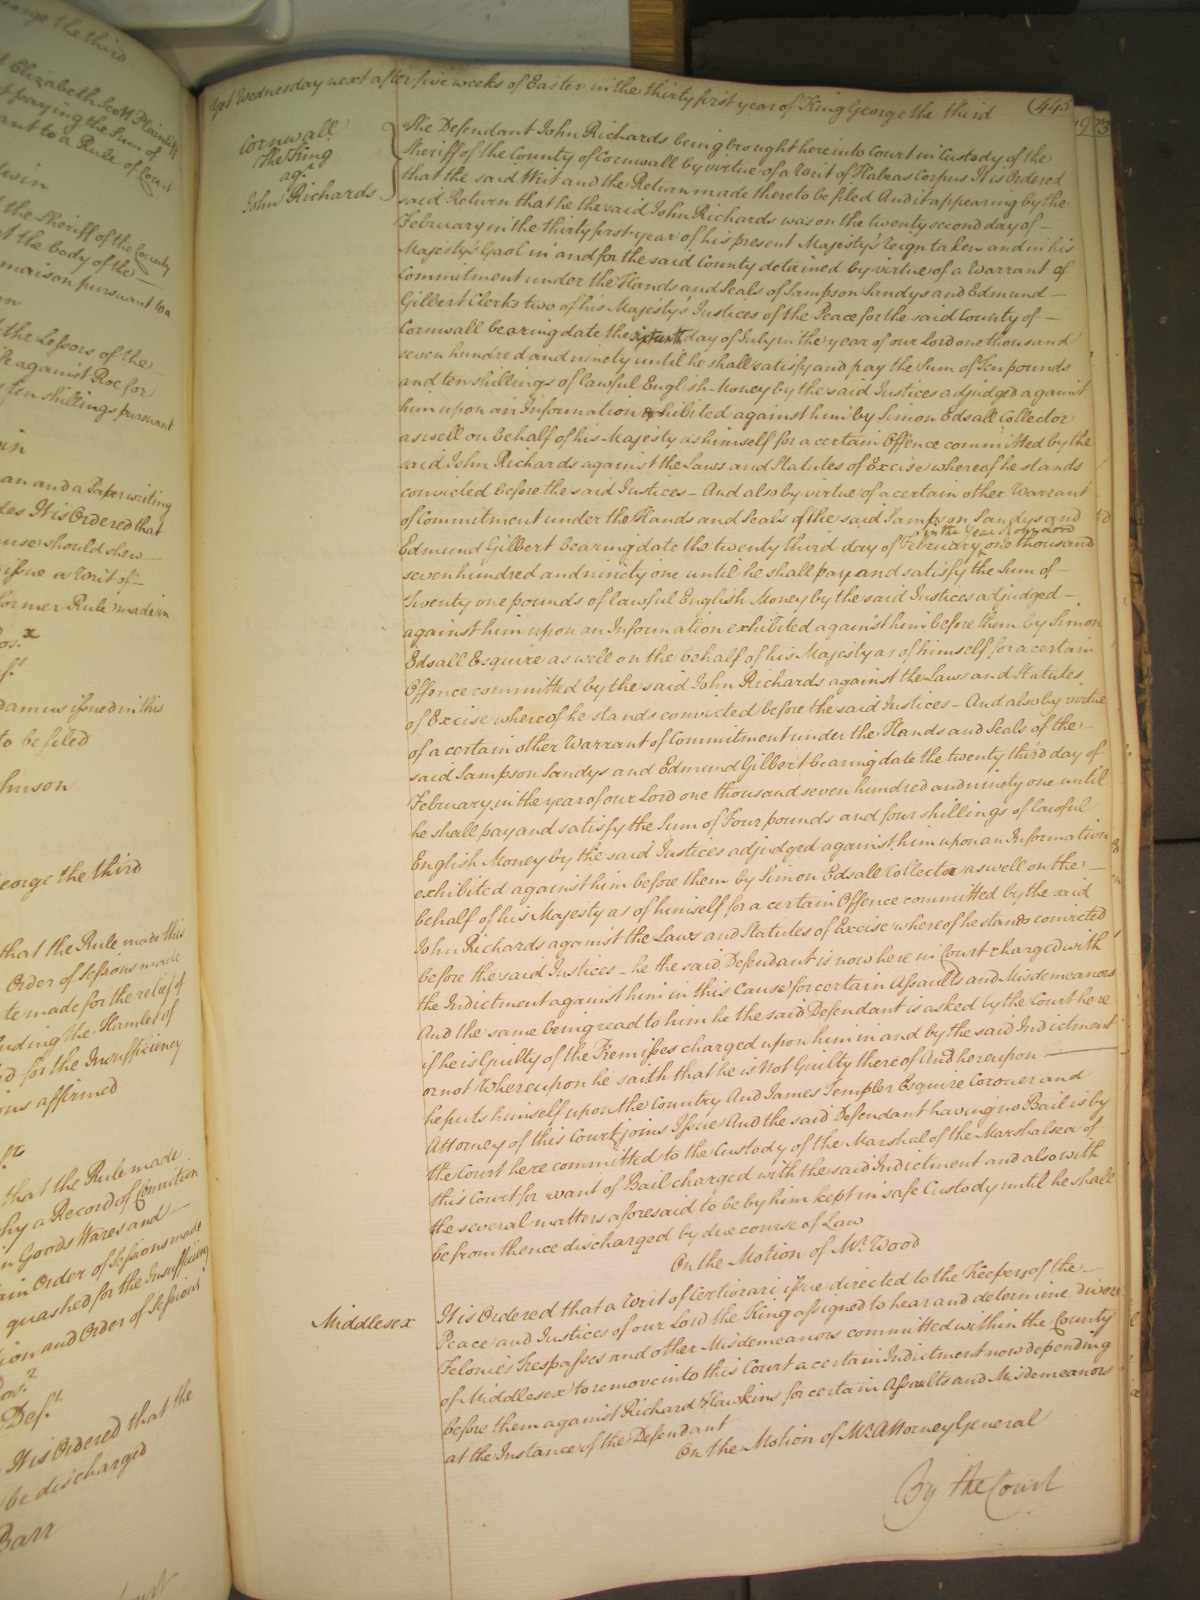 eorge the third
Elizabeth Scott Plaintiff
t paying the Sum of
ant to a Rule of Court
dwin
the Sheriff of the County
t the body of the
maison pursuant to a
the Lessors of the
against Roe for
ten shillings pursuant
an and a Paper writing
It is Ordered that
use should shew
issue a Writ of
former Rule made in
damus issued in this
to be filed
hnson
eorge the third
that the Rule made this
Order of Sessions made
te made for the relief of
uding the Hamlet of
d for the Insufficiency
ons affirmed
that the Rule made
hy a Record of Conviction
n Goods Wares and
ain Order of Sessions made
quashed for the Insufficiency
ion and Order of Sessions
Def.t
It is Ordered that the
be discharged
Barr
Yet Wednesday next after five weeks of Easter in the thirty first year of King George the third
(445
Cornwall
The King
ag.t
John Richards
The Defendant John Richards being brought here into Court in Custody of the
Sheriff of the County of Cornwall by virtue of a Writ of Habeas Corpus It is Ordered
that the said Writ and the Return made thereto be filed And it appearing by the
said Return that he the said John Richards was on the twenty second day of –
February in the thirty first year of his present Majesty's Reign taken and in his
Majesty's Gaol in and for the said County detained by virtue of a Warrant of
Commitment under the Hands and Seals of Sampson Sandys and Edmund –
Gilbert Clerks two of his Majesty's Justices of the Peace for the said County of –
Cornwall bearing date the day of July in the year of our Lord one thousand
seven hundred and ninety until he shall satisfy and pay the Sum of Ten pounds
and ten shillings of lawful English Money by the said Justices adjudged against
him upon an Information exhibited against him by Simon Edsall Collector
as well on behalf of his Majesty as himself for a certain Offence committed by the
said John Richards against the Laws and Statutes of Excise whereof he stands
convicted before the said Justices – And also by virtue of a certain other Warrant
of Commitment under the Hands and Seals of the said Sampson Sandys and
in the Year of our Lord
Edmund Gilbert bearing date the twenty third day of February one thousand
seven hundred and ninety one until he shall pay and satisfy the Sum of –
Twenty one pounds of lawful English Money by the said Justices adjudged –
against him upon an Information exhibited against him before them by Simon
Edsall Esquire as well on the behalf of his Majesty as of himself for a certain
Offence committed by the said John Richards against the Laws and Statutes
of Excise whereof he stands convicted before the said Justices – And also by virtue
of a certain other Warrant of Commitment under the Hands and Seals of the –
said Sampson Sandys and Edmund Gilbert bearing date the twenty third day of
February in the year of our Lord one thousand seven hundred and ninety one until
he shall pay and satisfy the Sum of Four pounds and four shillings of lawful
English Money by the said Justices adjudged against him upon an Information
exhibited against him before them by Simon Edsall Collector as well on the –
behalf of his Majesty as of himself for a certain Offence committed by the said
John Richards against the Laws and Statutes of Excise whereof he stands convicted
before the said Justices – he the said Defendant is now here in Court charged with
the Indictment against him in this Cause for certain Assaults and Misdemeanors
And the same being read to him he the said Defendant is asked by the Court here
if he is Guilty of the Premisses charged upon him in and by the said Indictment
or not Whereupon he saith that he is Not Guilty thereof And hereupon
he puts himself upon the Country And James Templer Esquire Coroner and
Attorney of this Court joins Issue And the said Defendant having no Bail is by
the Court here committed to the Custody of the Marshal of the Marshalsea of
this Court for want of Bail charged with the said Indictment and also with
the several matters aforesaid to be by him kept in safe Custody until he shall
be from thence discharged by due course of Law
On the Motion of Mr. Wood
Middlesex
It is Ordered that a Writ of Certiorari issue directed to the Keepers of the –
Peace and Justices of our Lord the King assigned to hear and determine divers
Felonies Trespasses and other Misdemeanors committed within the County
of Middlesex to remove into this Court a certain Indictment now depending
before them against Richard Hawkins for certain Assaults and Misdemeanors
at the Instance of the Defendant
On the Motion of Mr. Attorney General
By the Court